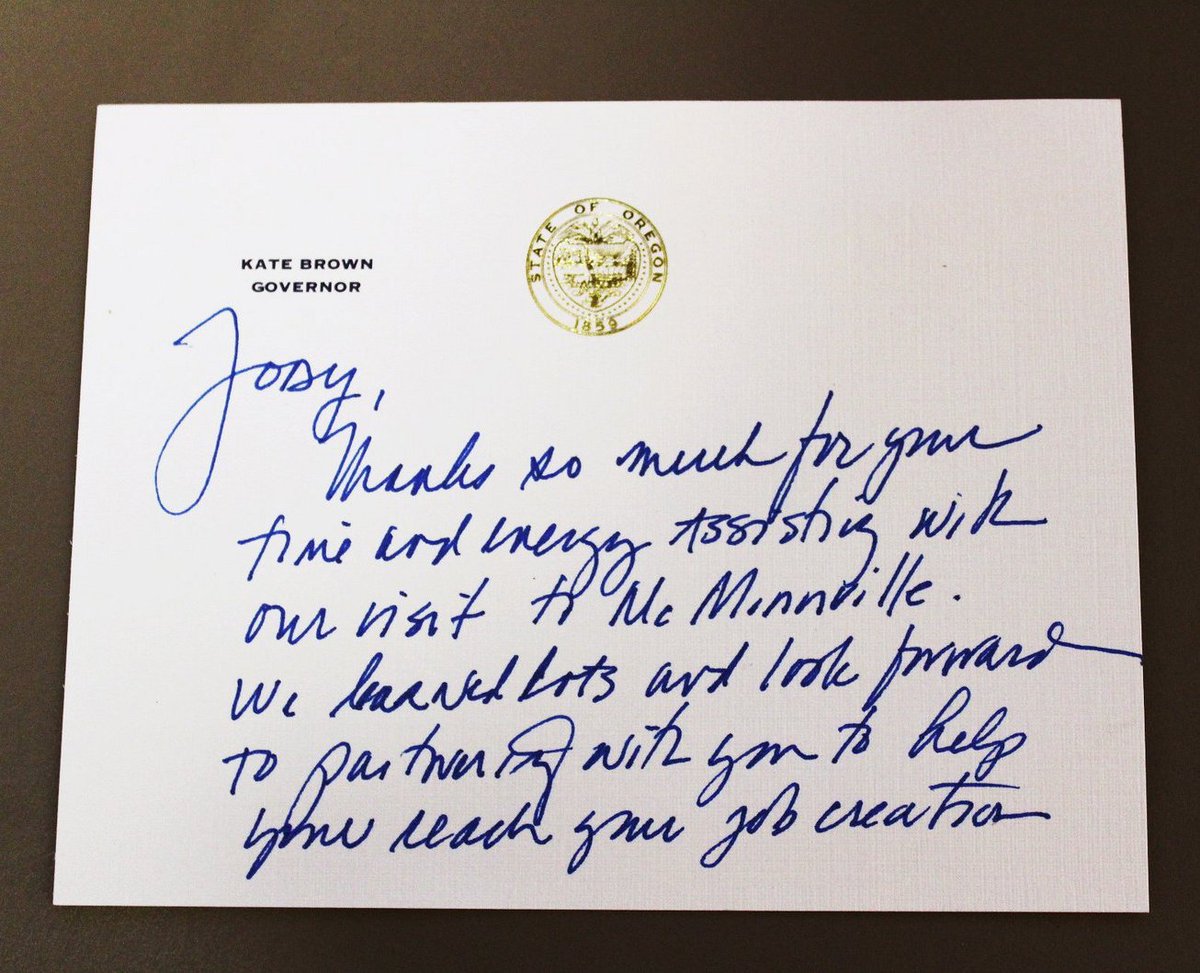 STATE OF OREGON
1859
KATE BROWN
GOVERNOR
Jody,
Thanks so much for your
time and energy assisting with
our visit to McMinnville.
We learned lots and look forward
to partnering with you to help
your reach your job creation